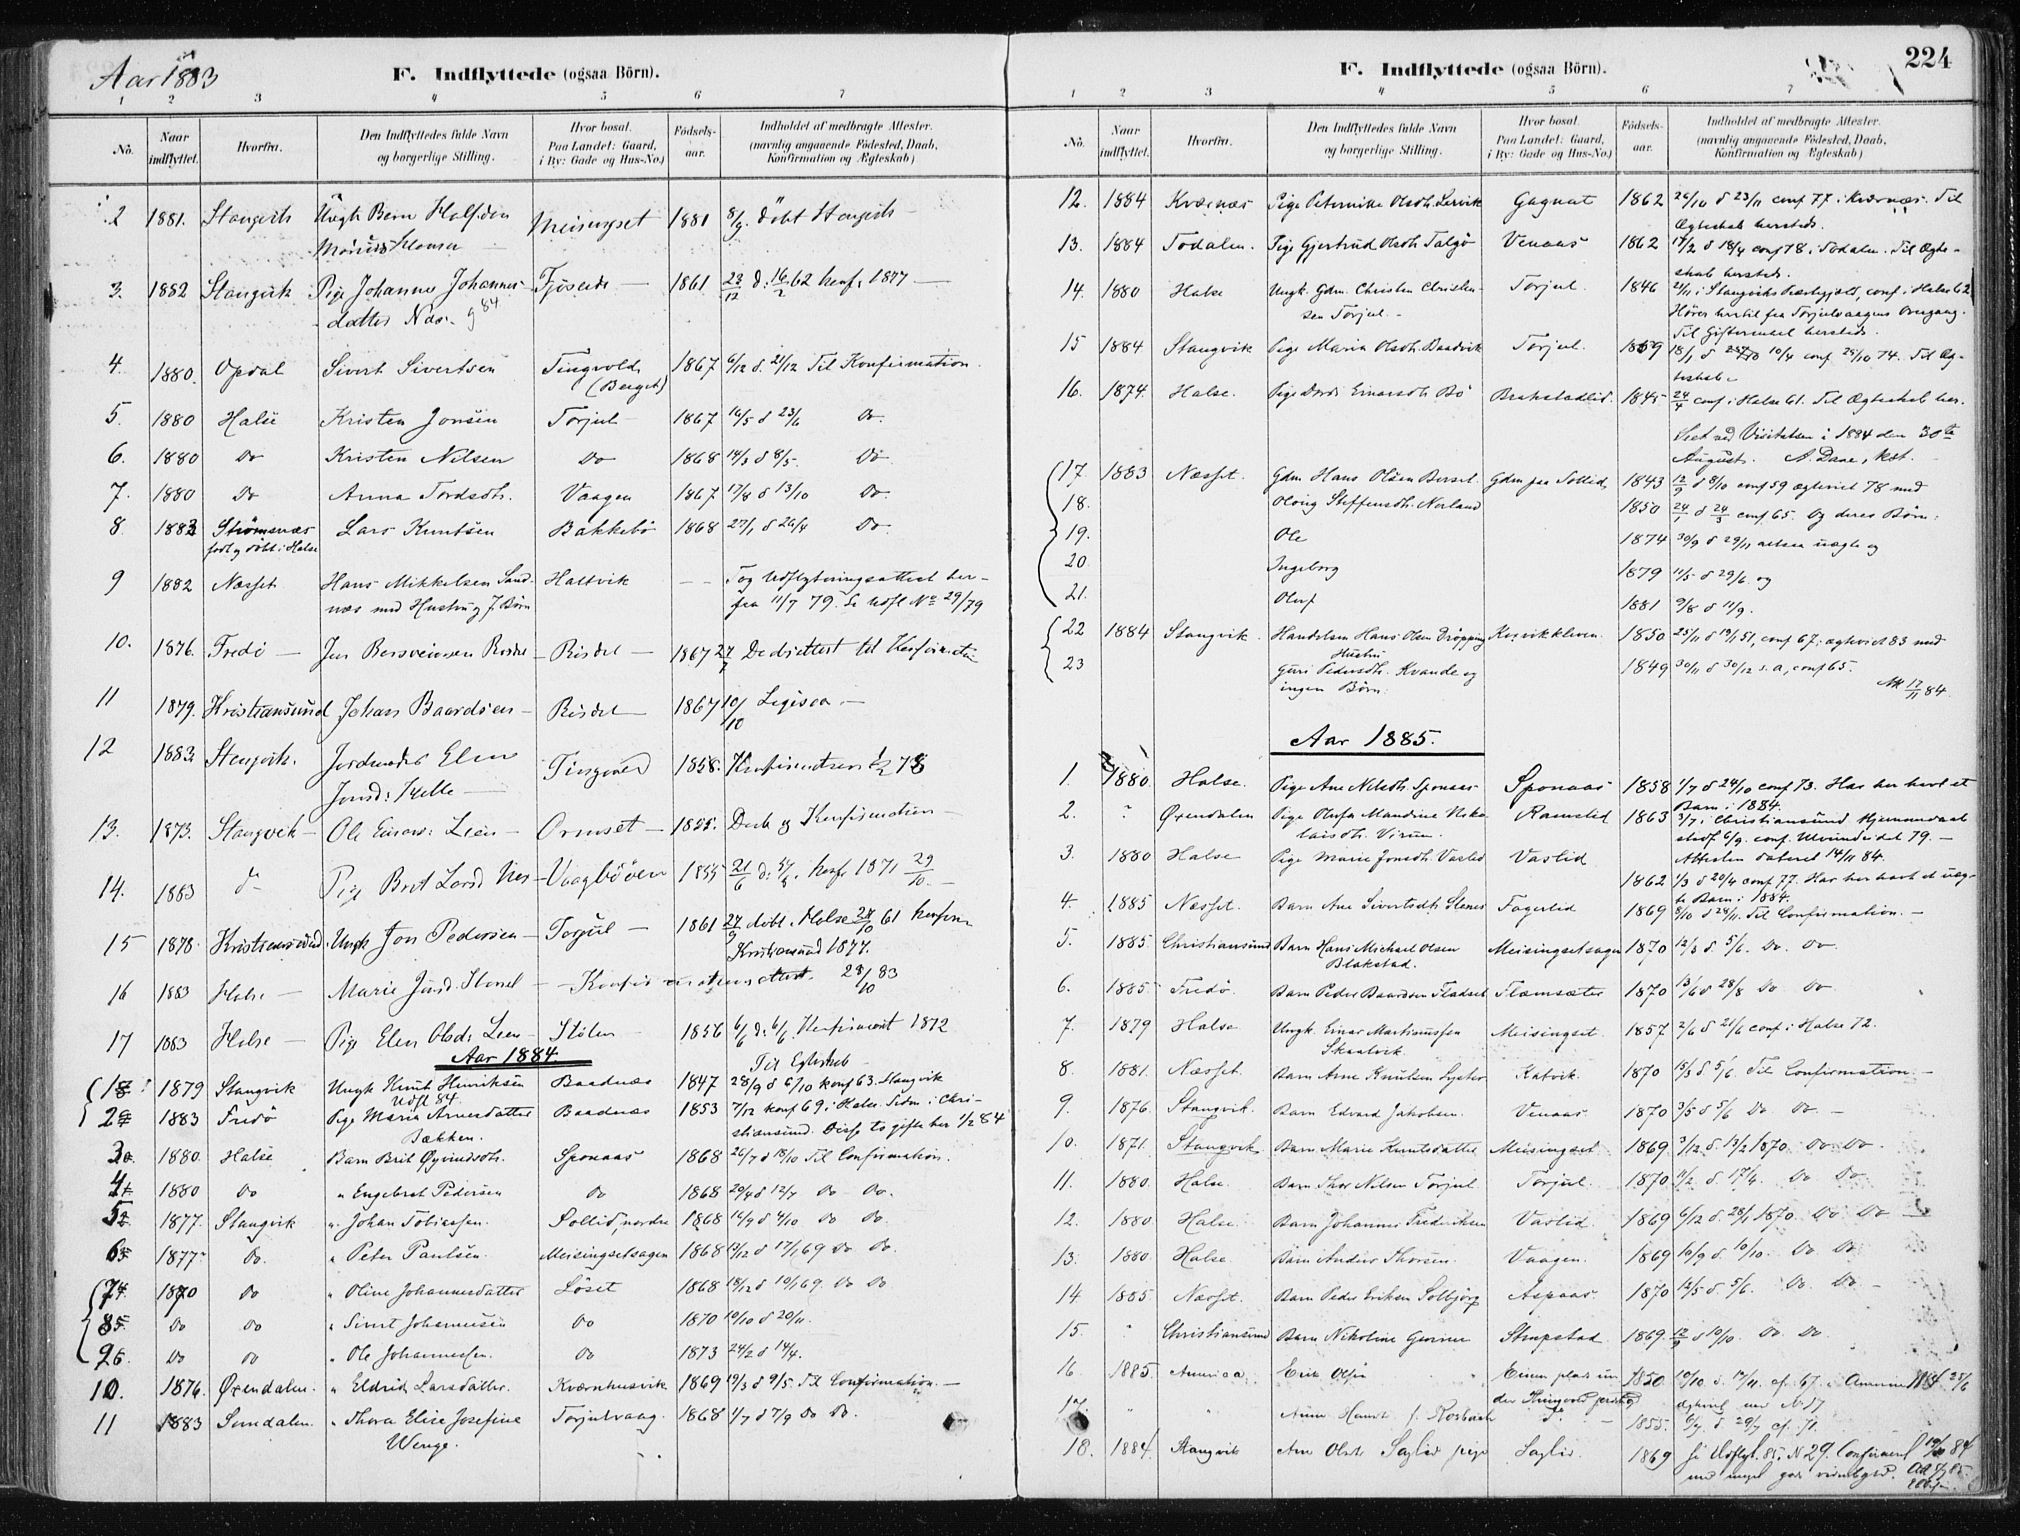 Aar 1883
F. Indflyttede (ogsaa Börn).
1 2 3 4 5 6 7
No. Naar indflyttet. Hvorfra. Den Indflyttedes fulde Navn og borgerlige Stilling. Hvor bosat. Paa Landet: Gaard, i By: Gade og Hus-No.) Födsels-aar. Indholdet af medbragte Attester. (navnlig angaaende Födested, Daab, Konfirmation og Ægteskab)
2 1881. Stangvik Ungk Bern Halfdan Meisingset 1881 8/9. döbt Stangvik
3. 1882 Stangvik Pige Johanne Johannes- 1861 23/12 d: 16/2 62 konf. 1877
datter Næs
4. 1880. Opdal Sivert Sivertsen Tingvold (Berget) 1867 6/12 d. 21/12 Til Konfirmation
5. 1880 Halse Kristen Jonsen Torjul 1867 16/5 d 23/6 Do
6. 1880 Do Kristen Nilsen Do 1868 14/3 d 8/5. Do
7. 1880 Do Anna Tordsdtr. Vaagen 1867 17/8 d 13/10 Do.
8 1882 Strömsnæs Lars Knutsen Bakkebö 1868 27/1 d 26/4 Do.
født og döbt i Halse
9 1882 Næsset Hans Mikkelsen Sand- Haltvik Tog Udflytningsattest her-
næs med Hustru og 7 Börn fra 11/7 79. Se Udfl No 29/79
10. 1876. Fredö Risdal 1867 Daabsattest til Konfirmation
11 1879. Kristiansund Johan Baardsen Risdal 1867 10/10 Ligesaa
12 1883. Stangvik. Elen Tingvold 1858. Konfirmation
13. 1873. Stangvik Ole Einars: Lien Ormset Daab og Konfirmation
14. 1883 do Pige Brit Larsd Næs Vaagböen 1855 21/6 konf. 1871 29/10.
15 1878. Kristiansund. Ungk Jon Pedersen Torjul 1861 27/9 döbt i Halse 61 konfirm
Kristiansund 1877.
16 1883 Halse Marie Konfirmationsattest 28/10 83
17 1883 Halse Pige Elen Olsd: Lien Stölen 1856 6/6 Konfirmert 1872
Aar 1884. Til Egteskab
1 1879 Stangvik Ungk Knut Henriksen Baadnæs 1847 28/9 d 6/10 konf 63. Stangvik
Udfl 84.
2 1883 Fredö Pige Marie Arnesdatter Baadnæs 1853 7/12 konf 69 i Halse. Siden i Chri-
Bækken. stiansund. Disse to gifte her 1/2 84
3. 1880. Halse Barn Brit Øyvindsdtr. Sponaas 1868 26/7 d 18/10 Til Confirmation.
4. 1880 Do " Engebret Pedersen Do 1868 20/4 d 12/7 Do Do.
5 1877. Stangvik " Johan Tobiassen. Sollid, nordre 1868 14/9 d 4/10 Do Do.
6 1877. Do. " Peter Paulsen. Meisingsetsagen 1868 13/12 d 17/1 69 Do Do.
7 1870 Do " Oline Johannesdatter Löset 1868 18/12 d 10/1 69. Do Do
8 Do Do " Sivert Johannesen Do 1870 10/10 d 20/11.
9 Do Do " Ole Johannessen. Do 1873 24/2 d 14/4.
10. 1876. Øxendalen. " Eldrid Larsdatter. Kværnhusvik 1869 19/3 d 9/5. Til Confirmation.
11 1883 Sundalen. " Thora Elise Josefine Torjulvaag. 1868 1/7 d 7/9 Do Do.
Wenge.
224
F. Indflyttede (ogsaa Börn).
1 2 3 4 5 6 7
No. Naar indflyttet. Hvorfra. Den Indflyttedes fulde Navn og borgerlige Stilling. Hvor bosat. Paa Landet: Gaard, i By: Gade og Hus-No.) Födsels-aar. Indholdet af medbragte Attester. (navnlig angaaende Födested, Daab, Konfirmation og Ægteskab)
12. 1884 Kværnæs Pige Peternikke Olsdtr. Lervik Gagnat 1862 26/10 d 23/11 conf 77 i Kværnæs. Til
Ægteskab hersteds.
13. 1884 Todalen. Pige Gjertrud Olsdtr Talgö Venaas 1862 17/2 d 18/4 conf 78 i Todalen. Til Ægte-
skab hersteds.
14. 1880 Halse Ungk. Gdm. Christen Christen- Torjul. 1846 21/11 i Stangviks Præstegjæld, conf. i Halse 62
sen Torjul. Hörer hertil fra Torjulvaagens Overgang.
Til Giftermaal hersteds.
15 1884 Stangvik Pige Marie Olsdtr. Baadvik Torjul. 1859 18/1 d 10/4 conf 25/10 74. Til Æg-
teskab.
16. 1874. Halse. Pige Dordi Einarsdtr. Bö Brakstadlid. 1845 24/4 conf. i Halse 61. Til Ægteskab her.
Seet ved Visitatsen i 1884 den 30te
August. A. Daae, kst.
17. 1883 Næsset. Gdm Hans Olsen Berset Gdm paa Sollid, 1843 12/9 d 8/10 conf 59 ægteviet 78 med
18. Olvig Steffensdtr. Norland 1850 24/1 d 24/3 conf 65. Og deres Börn:
19. Ole 1874 30/9 d 29/11 uægte og
20 Ingeborg 1879 11/5 d 29/6 og
21. Oluf 1881 9/8 d 11/9.
22 1884 Stangvik. Handelsm Hans Olsen Dröpping Korsvikleven. 1850 25/11 d 19/1 51, conf 67. ægteviet 83 med
Hustru
23 Guri Pedersdtr. Kvande og 1849 30/11 d 30/12 s. a, conf 65.
ingen Börn. 17/11 84.
Aar 1885.
1. 1880. Halse. Pige Ane Nilsdtr. Sponaas Sponaas 1858 1/7 d 24/10 conf 73. Har her havt et
Barn i 1884.
2. " Øxendalen Pige Olufa Mandrine Niko- Ramslid 1863 3/7 i Christiansund Hjemmedaab
laisdtr. Virum. stadf 6/9. conf. Ulvundeidet 79.
Attesten dateret 14/11 84.
3. 1880 Halse Pige Marie Jonsdtr. Vaslid Vaslid 1862 1/3 d 20/4 conf 77. Har her havt et uæg-
te Barn i 1884.
4. 1885 Næsset. Barn Ane Sivertsdtr. Stenes Fagerlid 1869 8/10 d 28/11. Til Confirmation.
5. 1885. Christiansund Barn Hans Michael Olsen Meisingsetsagen 1870 12/3 d. 5/6. Do. Do.
Blakstad.
6. 1885 Fredö. Barn Peder Baardsen Fladset Flemsæter 1870 13/6 d 28/8 Do Do
7. 1879 Halse Ungk. Einar Martinussen Meisingset 1857 2/6 d 21/6 conf. i Halse 72.
Skaalvik
8. 1881. Næsset. Barn Arne Knutsen Lyster Kalvik. 1870 15/3 d 5/6. Til Confirmation.
9. 1876. Stangvik. Barn Edvard Jakobsen. Venaas. 1870 3/5 d 5/6 Do Do.
10. 1871. Stangvik Barn Marie Knutsdatter Meisingset 1869 3/12 d. 13/2 1870. Do Do.
11. 1880. Halse. Barn Thor Nilsen Torjul Torjul. 1870 11/2 d. 17/4. Do Do.
12. 1880 Halse. Barn Johannes Fredriksen Vaslid. 1869 6/12 d. 28/1 1870. Do Do
13. 1880. Halse. Barn Anders Thorsen. Vaagen. 1869 10/9 d. 10/10. Do Do
14 1885 Næsset. Barn Peder Eriksen Solbjörg Aspaas. 1870 12/5 d. 5/6. Do Do
15. " Christiansund Barn Nikoline Strupstad 1869. 12/9 d 10/10. Do. Do.
16 1885. America Erik Olsen 1850 19/10 d. 19/11. cf. 67. i Amerika
17 " " Anne 1855. 6/7 d 29/7 cf. 71.
18. 1884 Stangvik Ane Olsdtr Saglid pige Saglid. 1869 Se Udflyt. 85. N 29. Confirmert 84